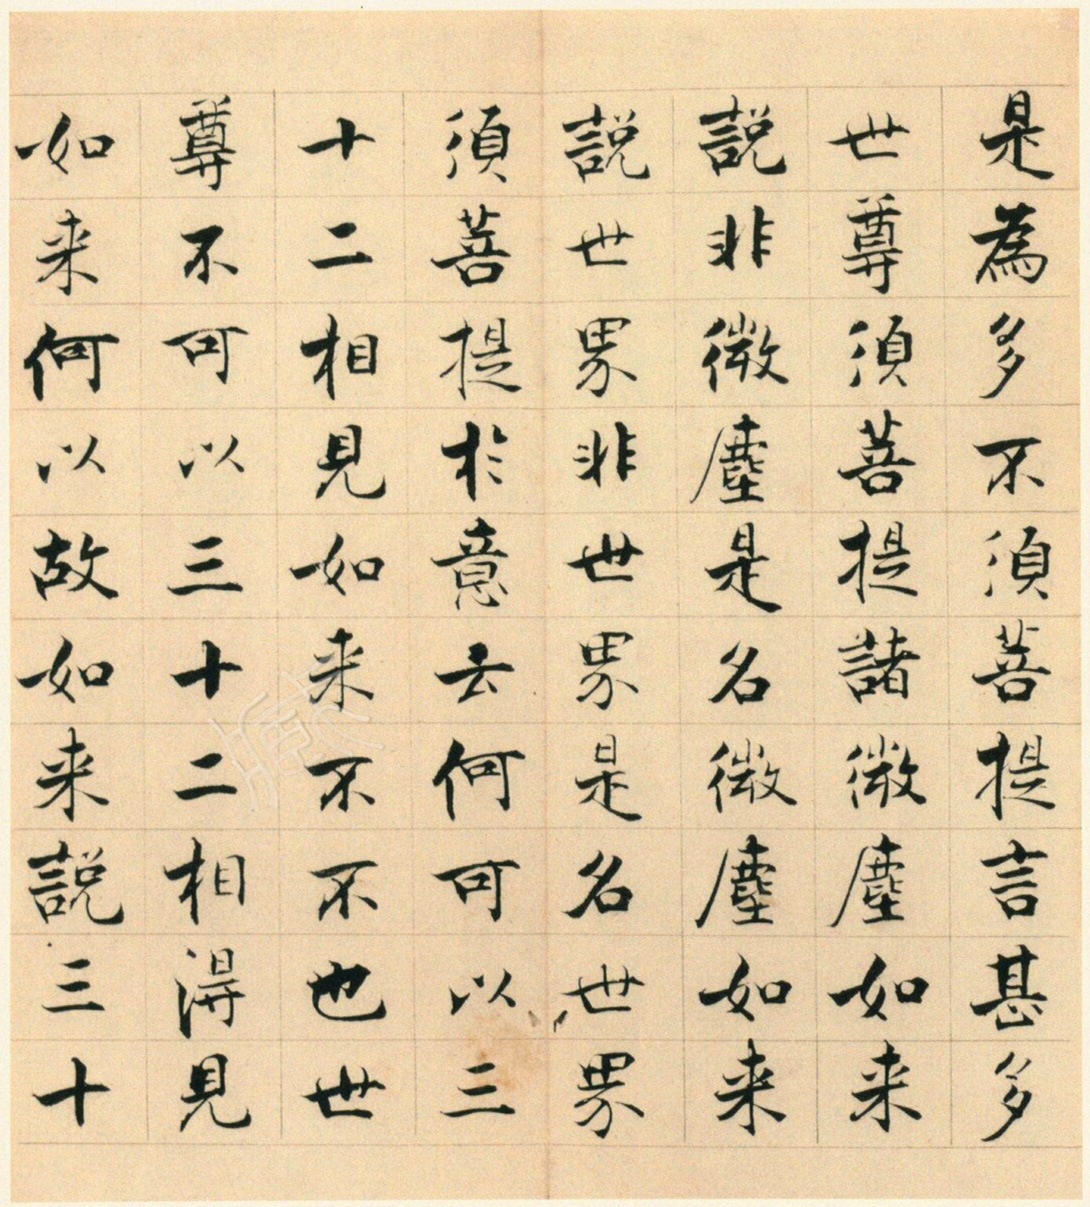 是為多不須菩提言甚多
世尊須菩提諸微塵如来
說非微塵是名微塵如来
說世界非世界是名世界
須菩提於意云何可以三
十二相見如来不不也世
尊不可以三十二相得見
如来何以故如来說三十